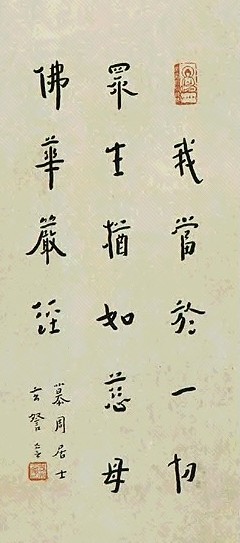 我當於一切
眾生猶如慈母
佛華嚴經
慕周居士
玄